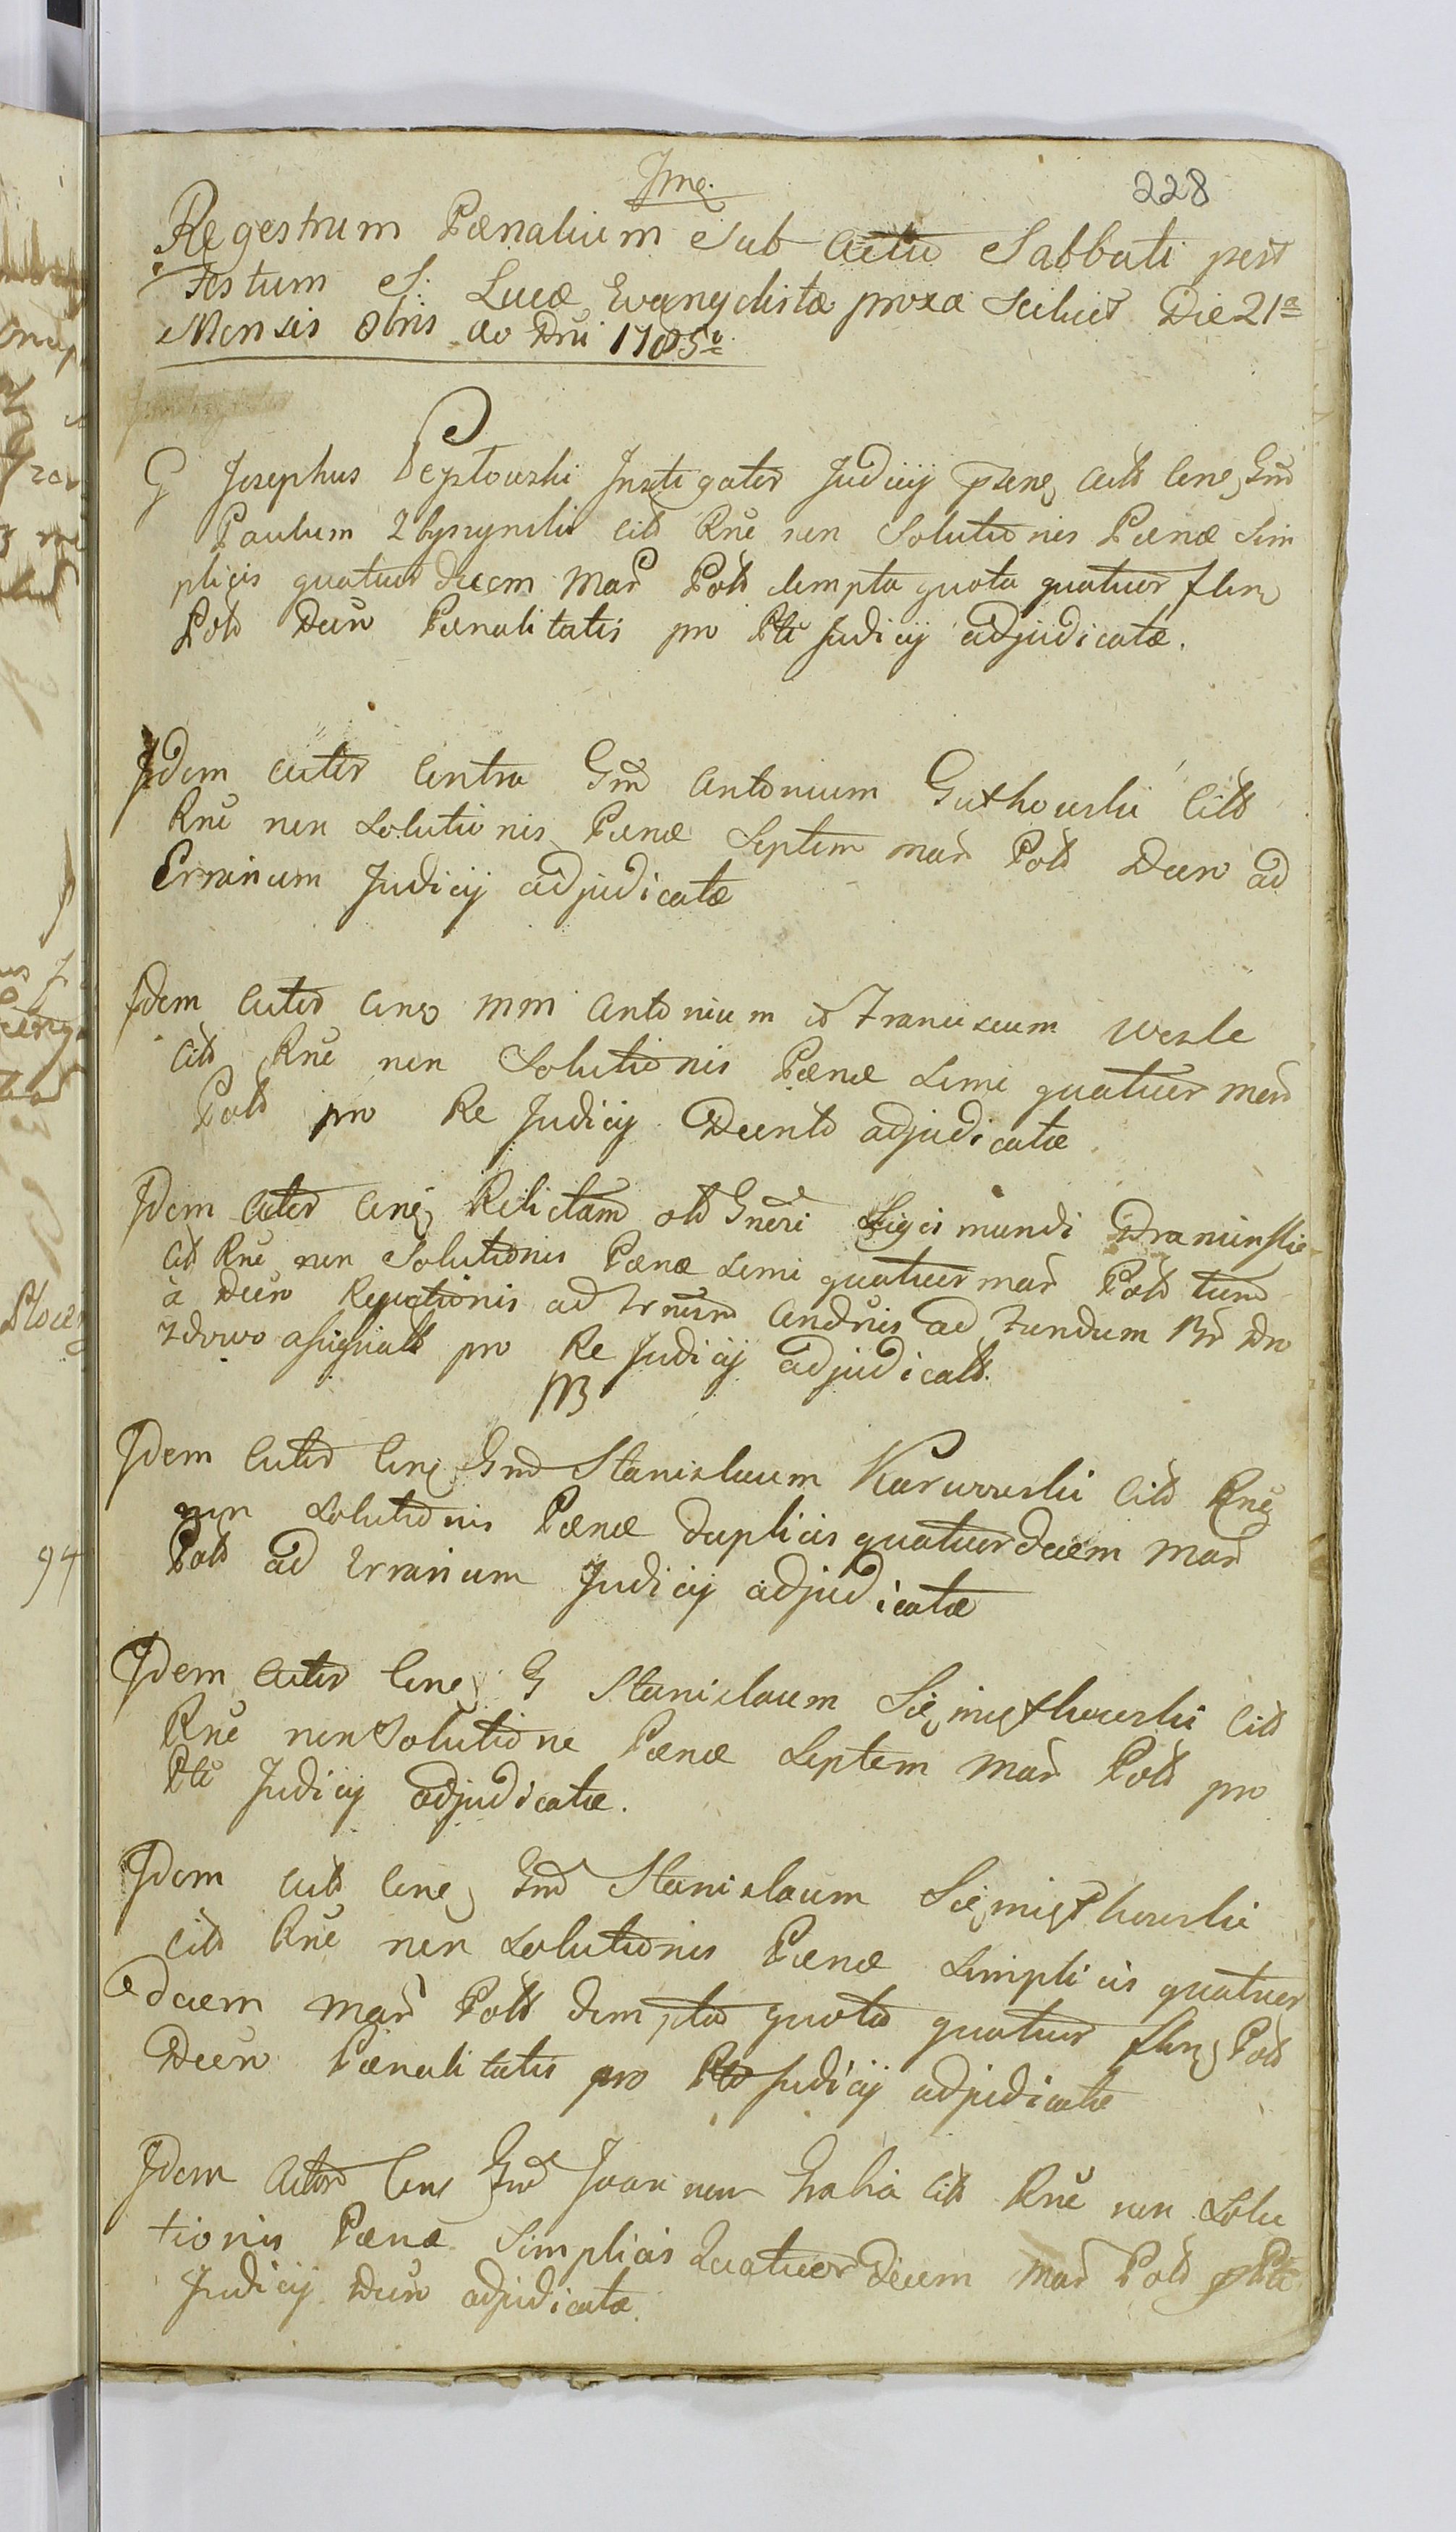 Jme.
228
Regestrum Pænalium sub actu Sabbati post
Festum S. Lucæ Evangelistæ proxa Scilicet Die 21a
Mensis Obris Ao Dni 1785o
G Josephus Instigator Judicij Actor Gnd
Paulum Citt Rne non Solutionis Pænæ Sim
plicis quatuordecem Mar Poll dempta quota quatuor flen
Poll Decr Pænalitatis pro Pte Judicij adjudicatæ.
Idem Actor Contra Gnd Antonium Gutkowski Citt
Rne non Solutionis Pænæ Septem mar Poll Decr ad
Errarium Judicij adjudicatæ
Idem Actor Cnr MM Antonium et Franciscum
Citt Rne non Solutionis Pænæ Simi quatuor Mar
Poll pro Re Judicij Decreto adjudicatæ
Idem Actor Cnr Relictam olt Gnesi Sigismundi
Citt Rne non Solutionis Pænæ Simi quatuor mar Poll tum
a Decr ad ad fundum
pro Re Judicij adjudicatt.
NB
Idem Actor Cnr Gnd Stanislaum Karwowski Citt Rne
non Solutionis Pænæ duplicis quatuordecem Mar
Poll ad Errarium Judicij adjudicatæ
Idem Actor Cnr G Stanislaum Siemiątkowski Citt
Rne non Solutione Pænæ Septem Mar Poll pro
Pte Judicij adjudicatæ.
Idem Actt Cnr Gnd Stanislaum Siemiątkowski
Citt Rne non Solutionis Pænæ Simplicis quatuor
decem Mar Poll dempta quota quatuor flen Poll
Decr Pænalitatis pro Pte Judicij adjudicatæ
Idem Actor Cnr Gnd Joannem Citt Rne non Solu
tionis Pænæ Simplicis Quatuordecem Mar Poll p Pte
Judicij Decr adjudicatæ.
94